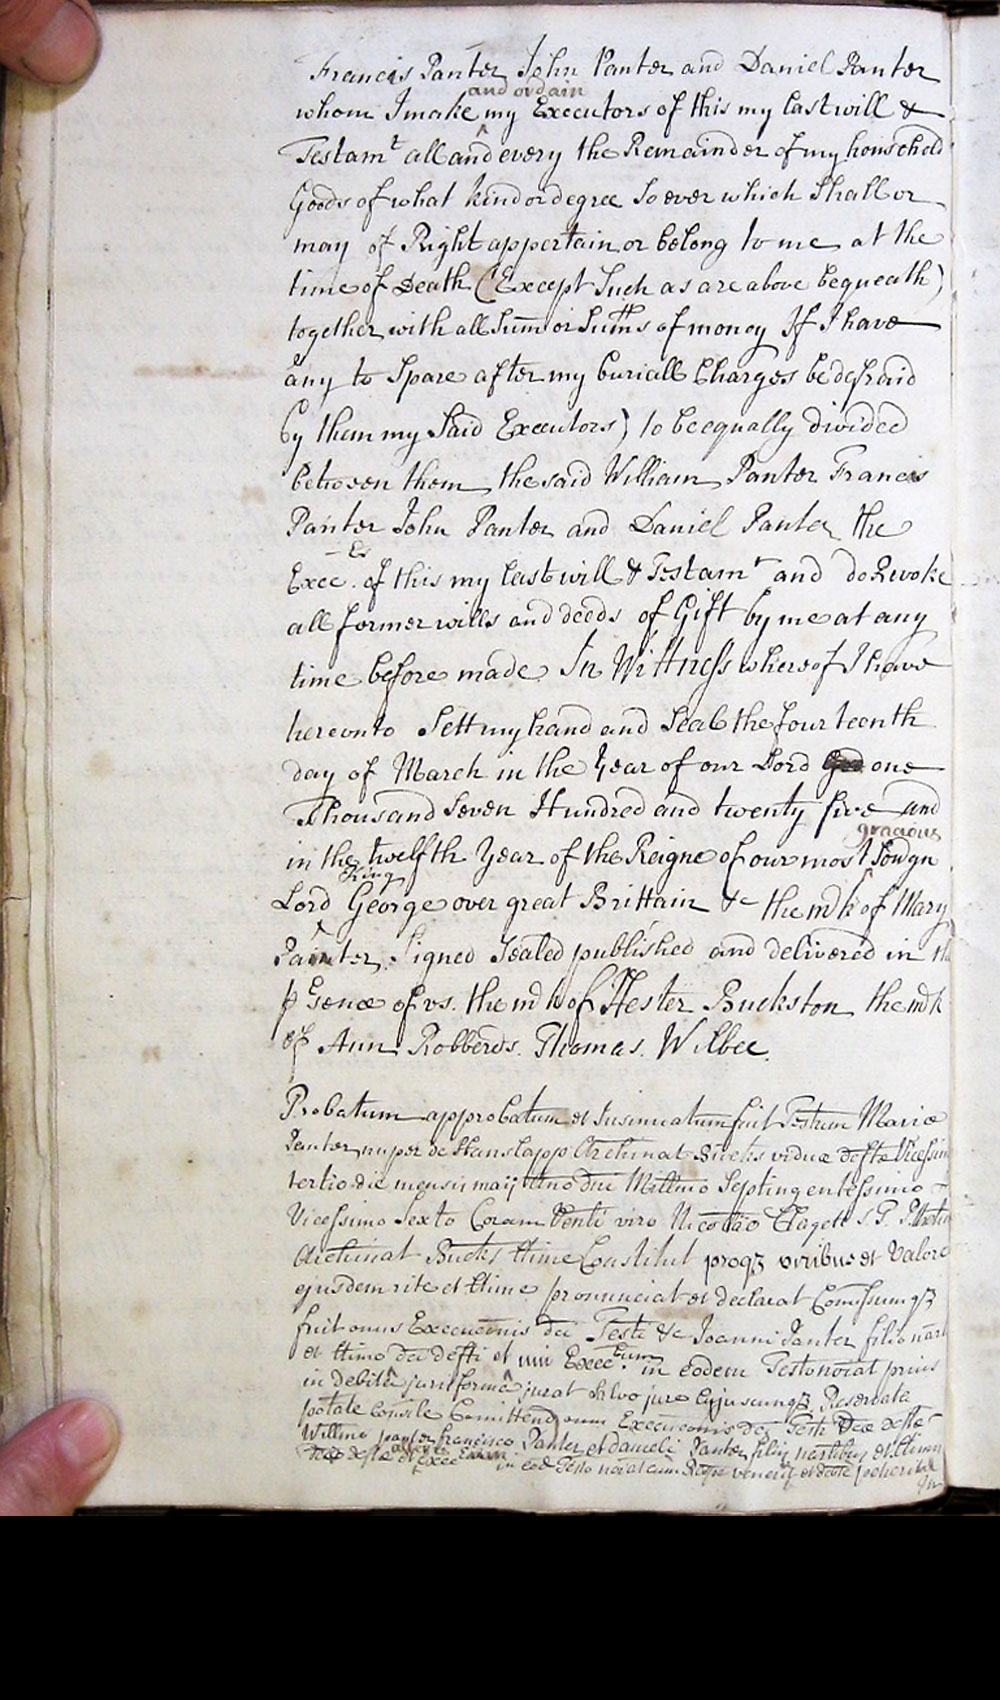 Francis Panter John Panter and Daniel Panter
and ordain
whom I make my Executors of this my last will &
Testamt all and every the Remainder of my household
Goods of what kind or degree so ever which shall or
may of Right appertain or belong to me at the
time of Death (Except Such as are above bequeath)
together with all Sum or Sums of money If I have
any to Spare after my buriall Charges be defraid
by them my Said Executors) to be equally divided
between them the said William Panter Francis
Panter John Panter and Daniel Panter the
Execrs of this my last will & Testamt and do Revoke
all former wills and deeds of Gift by me at any
time before made In Wittness whereof I have
hereunto Sett my hand and Seal the fourteenth
day of March in the Year of our Lord God one
Thousand Seven Hundred and twenty five and
gracious
in the twelfth Year of the Reigne of our most Sovgn
King
Lord George over great Brittain &c the mdk of Mary
Painter Signed Sealed published and delivered in the
psence of vs. the mdk of Hester Buckston the mdk
of Ann Robberds. Thomas. Wilbee.
Probatum approbatum et Insinuatum fuit Testum Mariæ
Panter nuper de Hanslapp Archinat Bucks viduæ deftæ Vicessimo
tertio die mensis maij Ano dni Millmo Septingentessimo
Vicessimo Sexto Coram Venli viro Nicolao Clagett S. T. P.
Archinat Bucks ltime Constitut proqz viribus et Valore
ejusdem rite et ltime pronunciat et declarat Comissumqz
fuit onus Execucionis dci Testi &c Joanni Panter filio nārli
et ltimo dci defti et uni Execrum in eodem Testo noiat prius
in debitâ juris formâ jurat Salvo jure cujuscunqz Reservata
potate consile Comittend onus Execucionis dci Testi Dcæ deftæ
Willmo panter francisco Panter et danieli Panter filijs nārlibus et ltimis
dcæ deftæ et Exec in eod Testo noiat cum
In